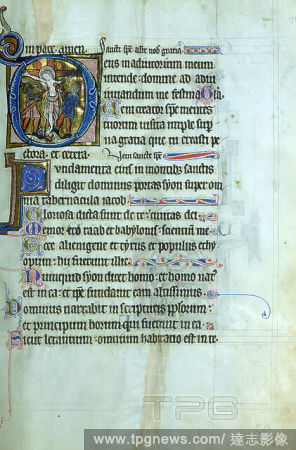 In pace amen. Sancti spiritus assit nobis gratia.
Deus in adiutorium meum
intende domine ad adiu
uandum me festina Gloria.
Veni creator spiritus mentes
tuorum uisita imple super
na gratia que tu creasti pe
ctora. et cetera. Veni sancte spiritus
Fundamenta eius in montibus sanctis
diligit dominus portas syon super om
nia tabernacula iacob.
Gloriosa dicta sunt de te ciuitas dei
Memor ero raab et babylonis scientium me
Ecce alienigene et tyrus et populus ethy
opum hii fuerunt illic.
Nunquid syon dicet homo et homo natus
est in ea et ipse fundauit eam altissimus
Dominus narrabit in scripturis populorum
et principum horum qui fuerunt in ea
Sicut letantium omnium habitatio est in te
TPG
www.tpgnews.com / 達志影像